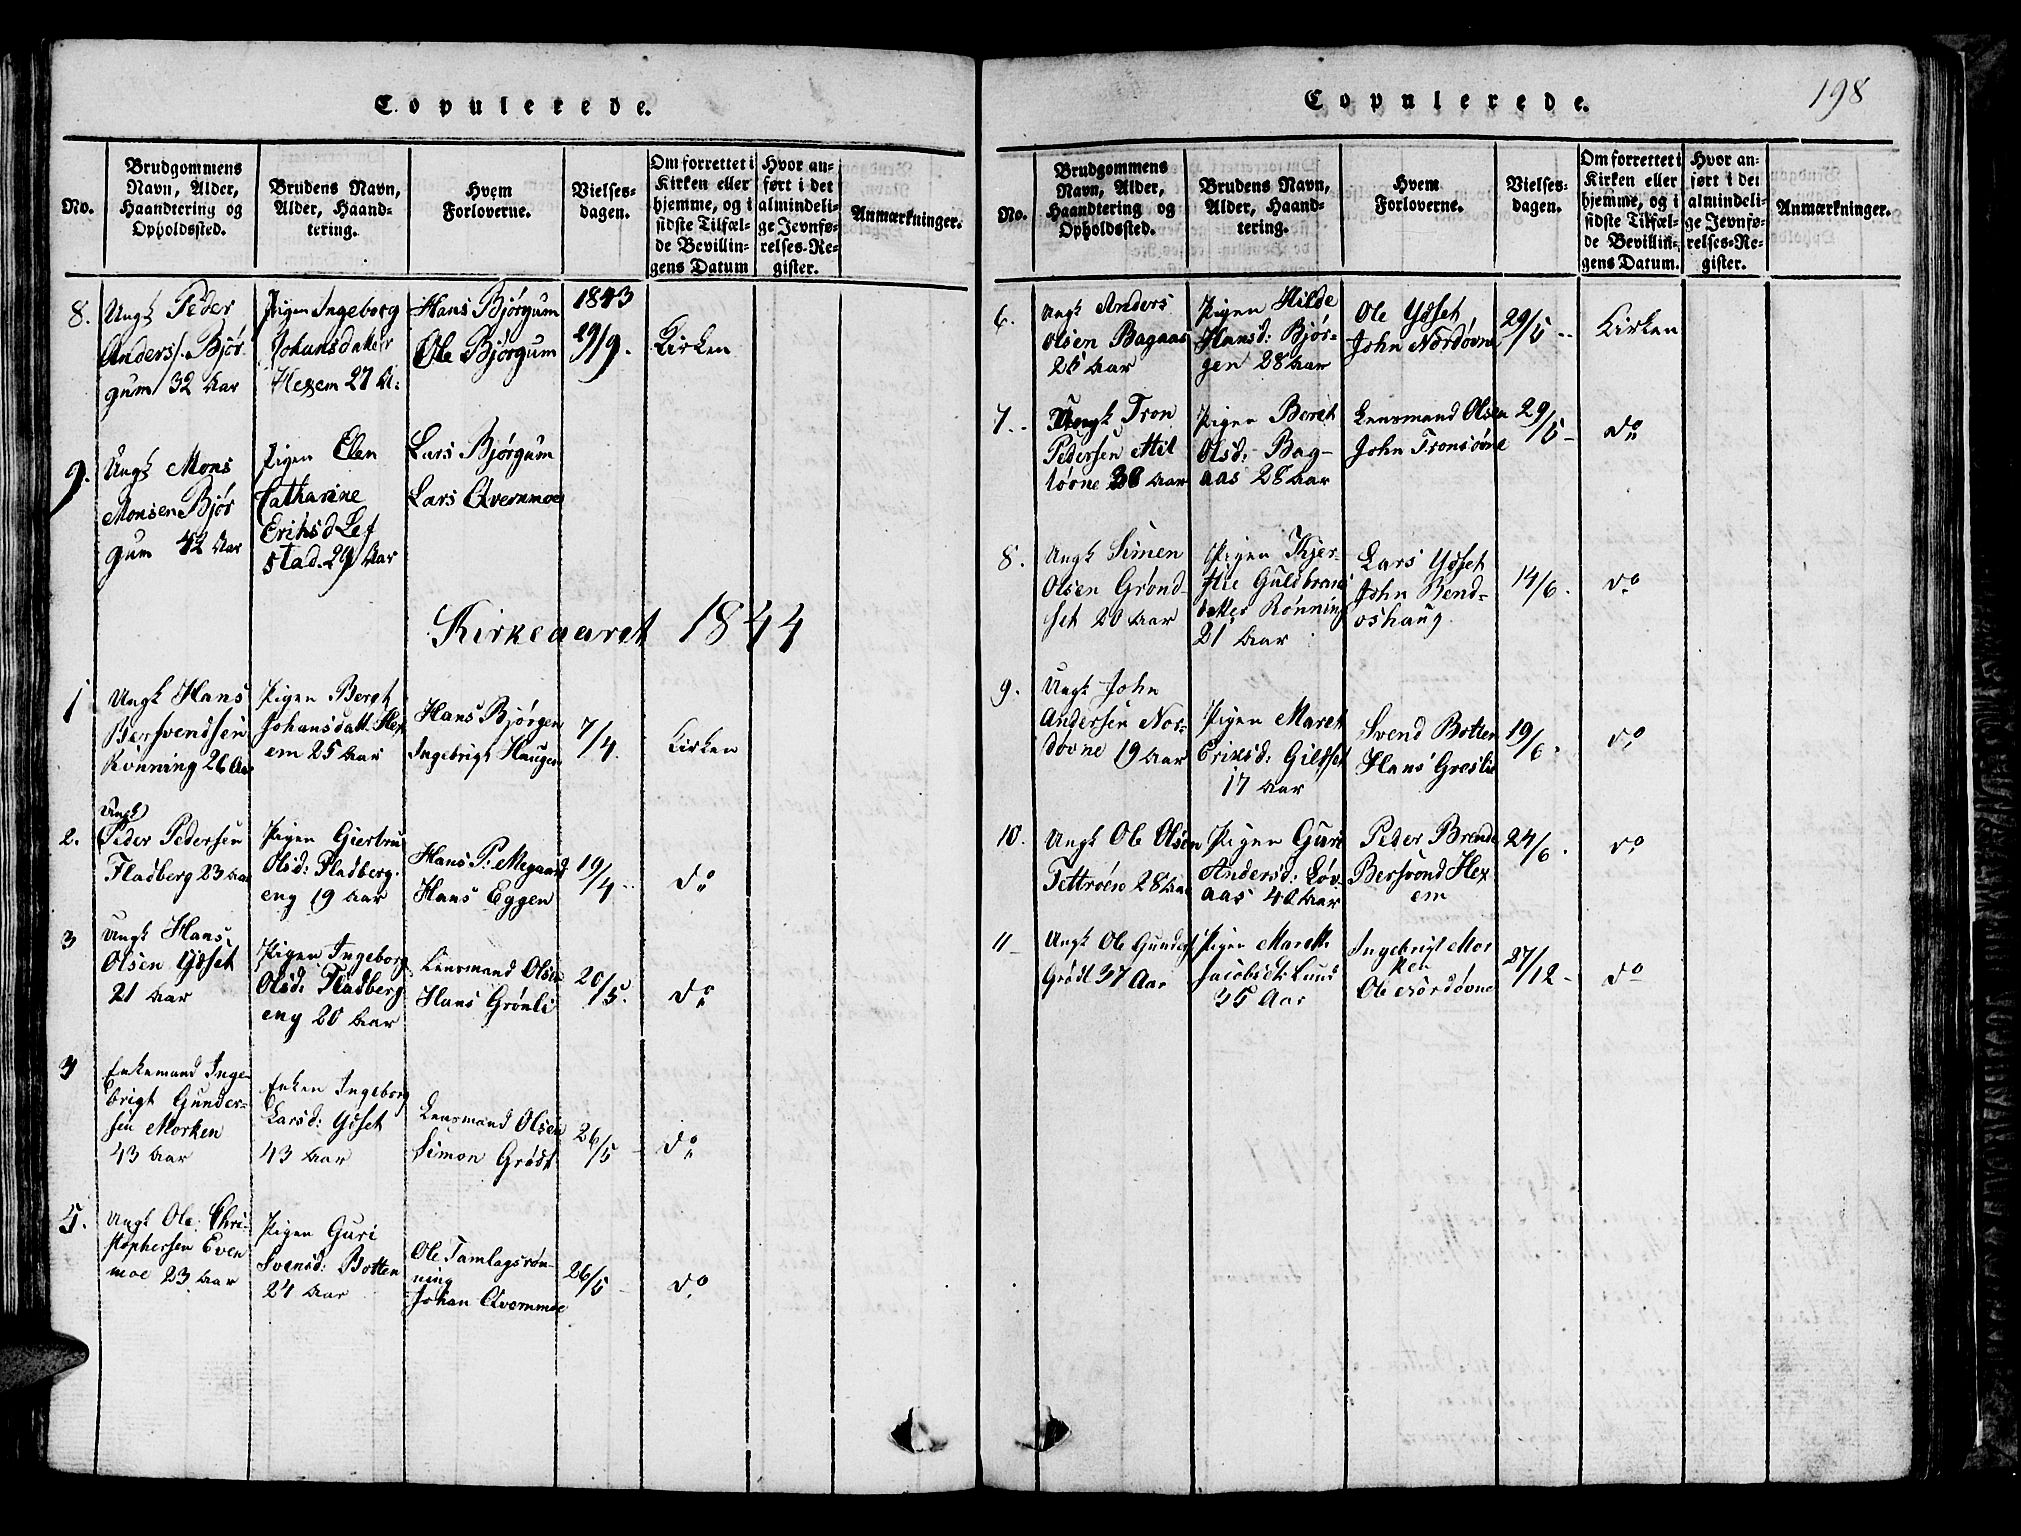 Copulerede.
No.
Brudgommens
Navn, Alder,
Haandtering og
Opholdssted.
Brudens Navn,
Alder, Haand-
tering.
Hvem
Forloverne.
Vielses-
dagen.
Om forrettet i
Kirken eller
hjemme, og i
sidste Tilfæl-
de Bevillin-
gens Datum
Hvor an-
ført i det
almindeli-
ge Jevnfø-
relses-Re-
gister.
Anmærkninger.
8.
Ungk Peder
Anders/. Bjør
gum 32 Aar
Pigen Ingeborg
Johansdatter
Hexem 27 A:
Hans Bjørgum
Ole Bjørgum
1843
29/9.
Kirken
9.
Ungk Mons
Monsen Bjør
gum 42 Aar
Pigen Elen
Catharine
Eriksd Lef
stad. 29 Aar
Lars Bjørgum
Lars Qvernmoe
Kirkeaaret 1844
1
Ungk Hans
Bersvendsen
Rønning 26 Aar
Pigen Beret
Johansdatt Hex
em 25 Aar
Hans Bjørgen
Ingebrigt Haugen
7/4.
Kirken
2.
Ungk
Peder Pedersen
Fladberg 23 Aar
Pigen Giertru
Olsd: Fladberg
eng 19 Aar
Hans P. Megaard
Hans Eggen
19/4
do
3
Ungk Hans
Olsen Ydset
21 Aar
Pigen Ingeborg
Olsd: Fladberg
eng 20 Aar
Lensmand Olsen
Hans Grønli
20/5.
do
4
Enkemand Inge
brigt Gunder-
sen Morken
43 Aar
Enken Ingeborg
Larsd: Ydset
43 Aar
Lensmand Olsen
Simon Grødt
26/5
do
5.
Ungk Ole Chri-
stophersen Even
moe 23 Aar
Pigen Guri
Svensd: Botten
24 Aar
Ole Tamlagsrøn-
ning
Johan Qvernmoe
26/5
do
198
Copulerede.
No.
Brudgommens
Navn, Alder,
Haandtering og
Opholdssted.
Brudens Navn,
Alder, Haand-
tering.
Hvem
Forloverne.
Vielses-
dagen.
Om forrettet i
Kirken eller
hjemme, og i
sidste Tilfæl-
de Bevillin-
gens Datum.
Hvor an-
ført i det
almindeli-
ge Jevnfø-
relses-Re-
gister.
Anmærkninger.
6.
Ungk Anders
Olsen Bagaas
25 Aar
Pigen Hilde
Hansd: Bjør-
gen 28 Aar
Ole Ydset
John Nordøvne
29/5
Kirken
7.
Ungk Tron
Pedersen Mit
tøvne Aar
Pigen Beret
Olsd: Bag-
aas 28 Aar
Lensmand Olsen
John Tronsøvne
29/5
do
8.
Ungk Simen
Olsen Grønd-
set 20 Aar
Pigen Kjer-
stie Guldbrands
datter Rønning
21 Aar
Lars Ydset
John Bend-
oshaug
14/6.
do
9.
Ungk John
Andersen Nor-
døvne 19 Aar
Pigen Maret
Eriksd: Gildset
17 Aar
Svend Botten
Hans Greslie
19/6.
do
10.
Ungk Ole Olsen
Tettrøen 28 Aar
Pigen Guri
Andersd: Løv-
aas 40 Aar
Peder Brende
Bersvond Hex
em
24/6.
do
11
Ungk Ole Gunders/
Grødt 37 Aar
Pigen Mareth
Jacobsdt: Lund
35 Aar
Ingebrigt Mor
ken
Ole Nordøvne
27/12
do